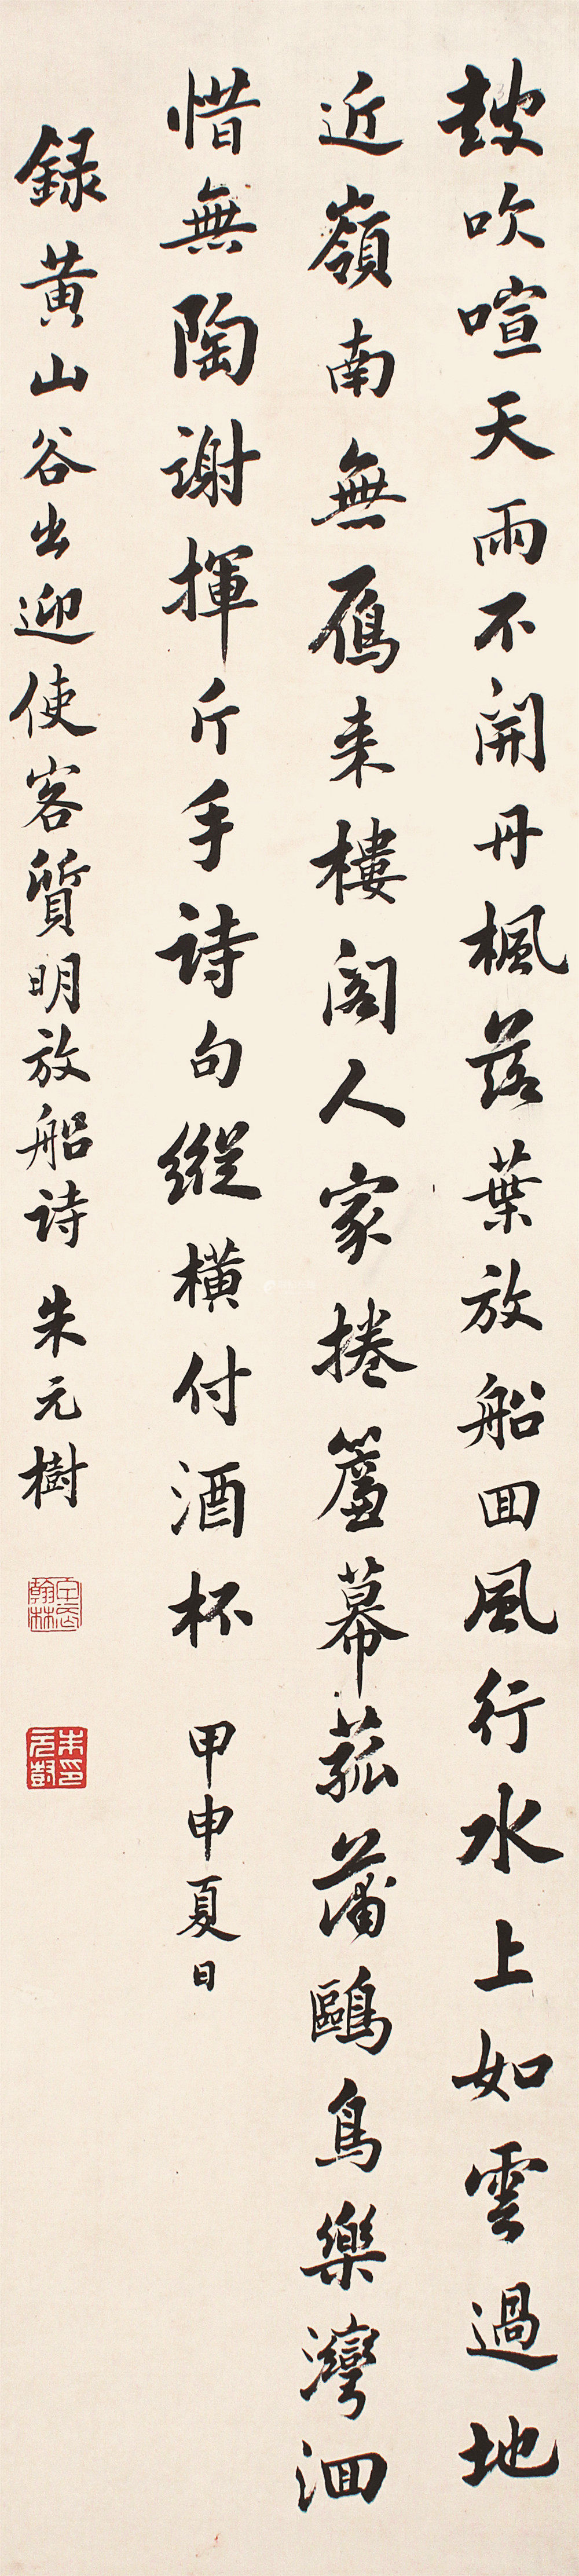 鼓吹喧天雨不開丹楓落葉放船回風行水上如雲過地
近嶺南無鴈来樓閣人家捲簾幕菰蒲鷗鳥樂灣洄
惜無陶謝揮斤手詩句縱橫付酒杯 甲申夏日
錄黃山谷出迎使客質明放船詩 朱元樹
朱元樹印